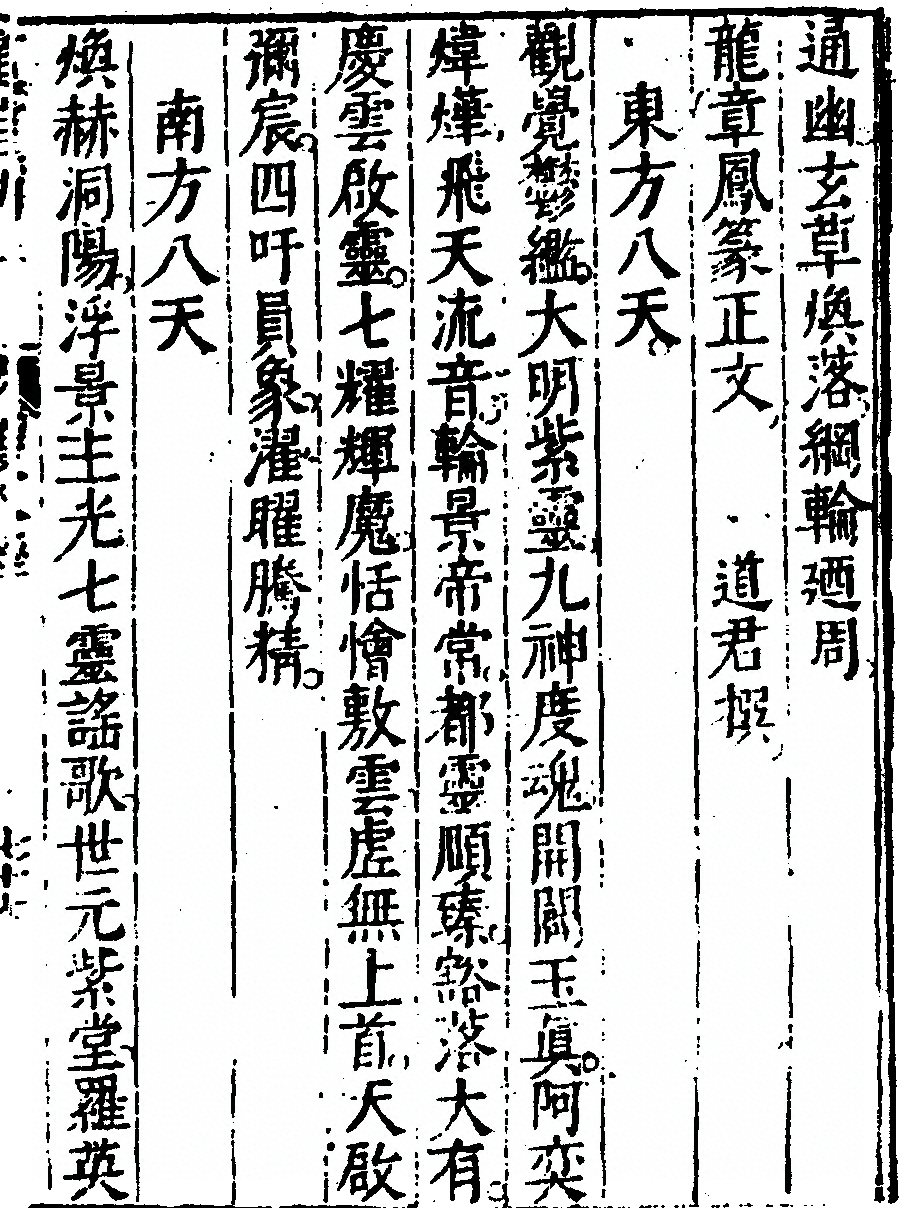 通幽玄草煥落綱輪廻周
龍章鳳篆正文　道君撰
東方八天
觀覺鬱鑑大明紫靈九神度魂開闢玉眞阿奕
煒燁飛天流音輪景帝常都靈順臻豁落大有
慶雲啟靈七耀輝魔恬憺敷雲虛無上首天啟
彌宸四吁員象濯曜騰精
南方八天
煥赫洞陽浮景主光七靈謠歌世元紫堂羅英